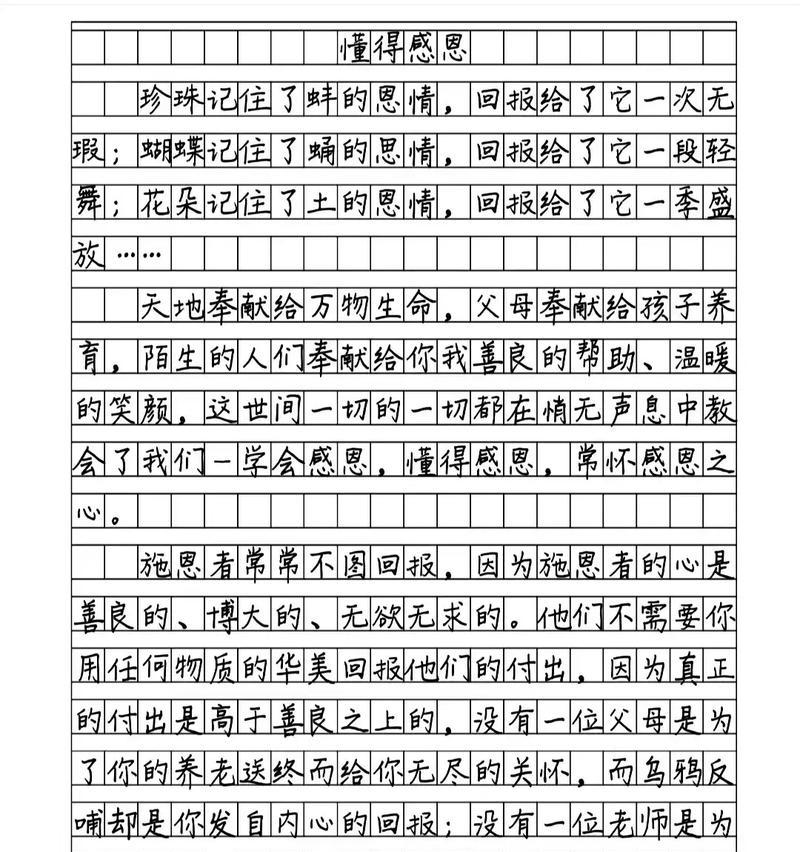 懂得感恩
珍珠记住了蚌的恩情，回报给了它一次无
瑕；蝴蝶记住了蛹的思情，回报给了它一段轻
舞；花朵记住了土的恩情，回报给了它一季盛
放……
天地奉献给万物生命，父母奉献给孩子养
育，陌生的人们奉献给你我善良的帮助、温暖
的笑颜，这世间一切的一切都在悄无声息中教
会了我们一学会感恩，懂得感恩，常怀感恩之
心。
施恩者常常不图回报，因为施恩者的心是
善良的、博大的、无欲无求的。他们不需要你
用任何物质的华美回报他们的付出，因为真正
的付出是高于善良之上的，没有一位父母是为
了你的养老送终而给你无尽的关怀，而乌鸦反
哺却是你发自内心的回报；没有一位老师是为